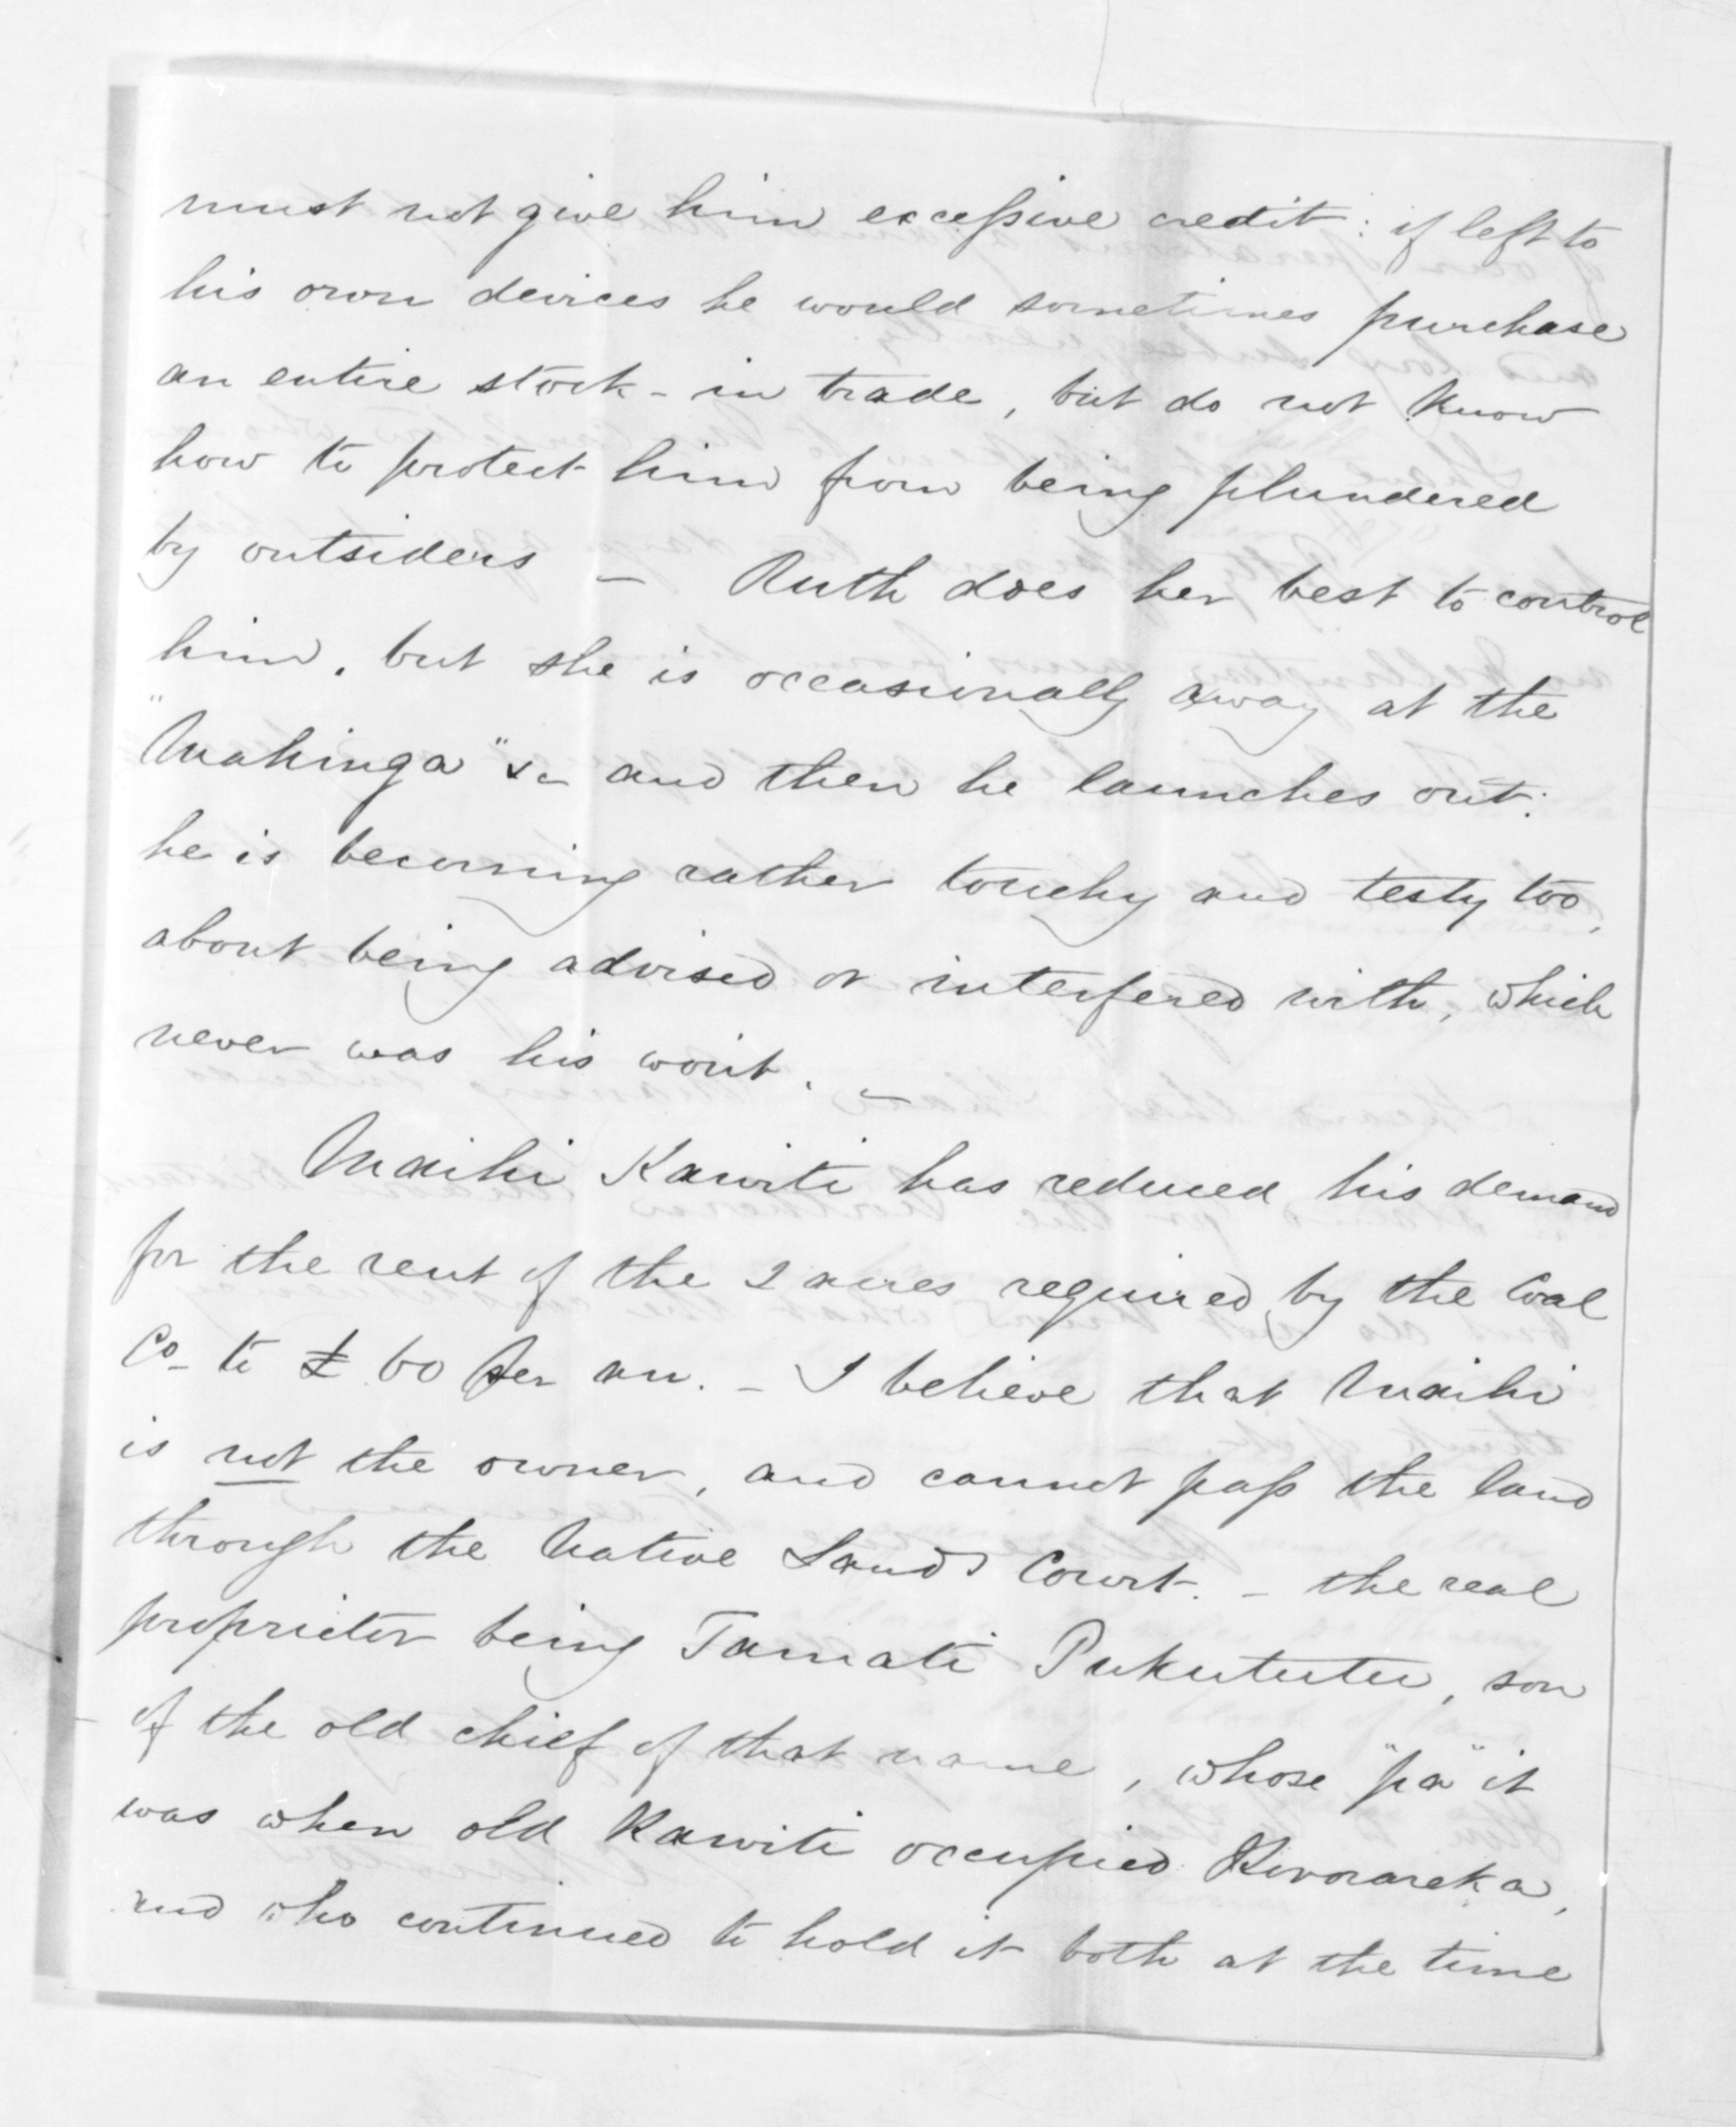 must not give him excessive credit: if left to
his own devices he would sometimes purchase
an entire stock-in trade, but do not know
how to protect him from being plundered
by outsiders – Ruth does her best to control
him. but she is occasionally away at the
"Mahinga" &c and then he launches out:
he is becoming rather touchy and testy too,
about being advised or interfered with, which
never was his wont. –
Maihi Kawiti has reduced his demand
for the rent of the 2 acres required by the Coal
Co– to £60 per an. – I believe that Maihi
is not the owner, and cannot pass the land
through the Native Lands Court. – the real
proprietor being Tamati Pukututu, son
of the old chief of that name, whose "pa" it
was when old Kawiti occupied Kororareka,
and who continued to hold it both at the time